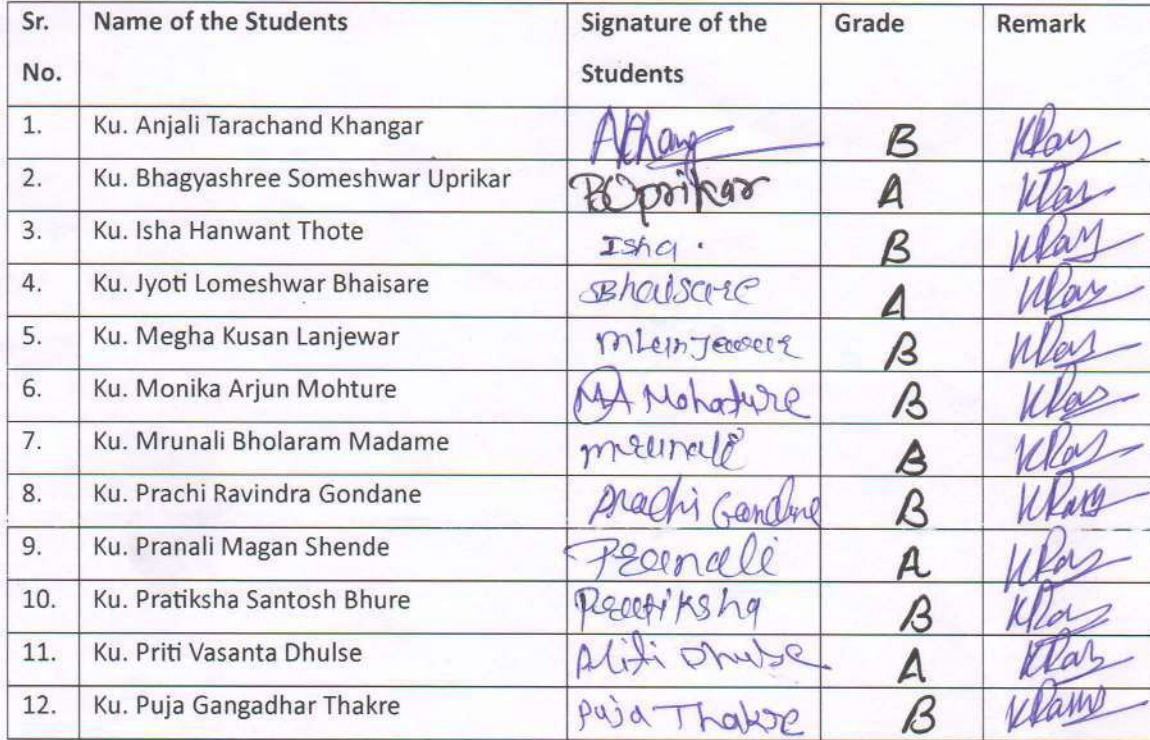 Sr. No. Name of the Students Signature of the Students Grade Remark
1. Ku. Anjali Tarachand Khangar B
2. Ku. Bhagyashree Someshwar Uprikar BUprikar A
3. Ku. Isha Hanwant Thote Isha. B
4. Ku. Jyoti Lomeshwar Bhaisare Bhaisare A
5. Ku. Megha Kusan Lanjewar MLanjewar B
6. Ku. Monika Arjun Mohture MA Mohature B
7. Ku. Mrunali Bholaram Madame mrunali
8. Ku. Prachi Ravindra Gondane Prachi Gondane B
9. Ku. Pranali Magan Shende Pranali A
10. Ku. Pratiksha Santosh Bhure Pratiksha B
11. Ku. Priti Vasanta Dhulse Priti Dhulse A
12. Ku. Puja Gangadhar Thakre Puja Thakre B